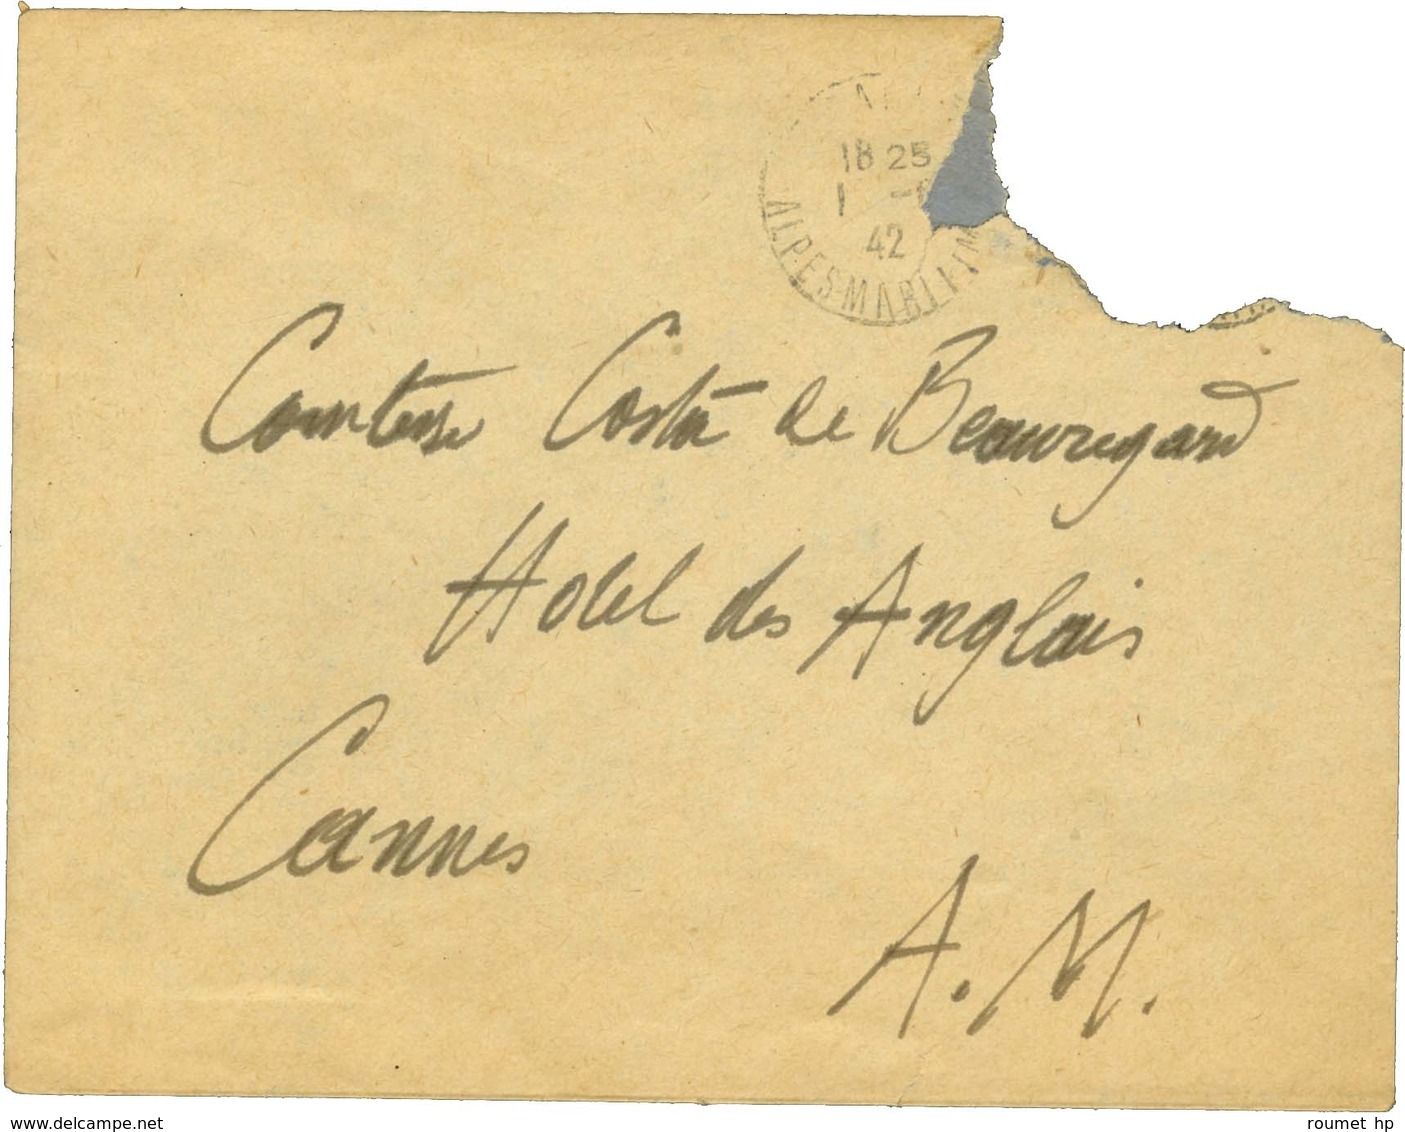 18 25
42
ALPES-MARITIM
Comtesse Costa de Beauregard
Hotel des Anglais
Cannes
A.M.
www.delcampe.net
roumet hp